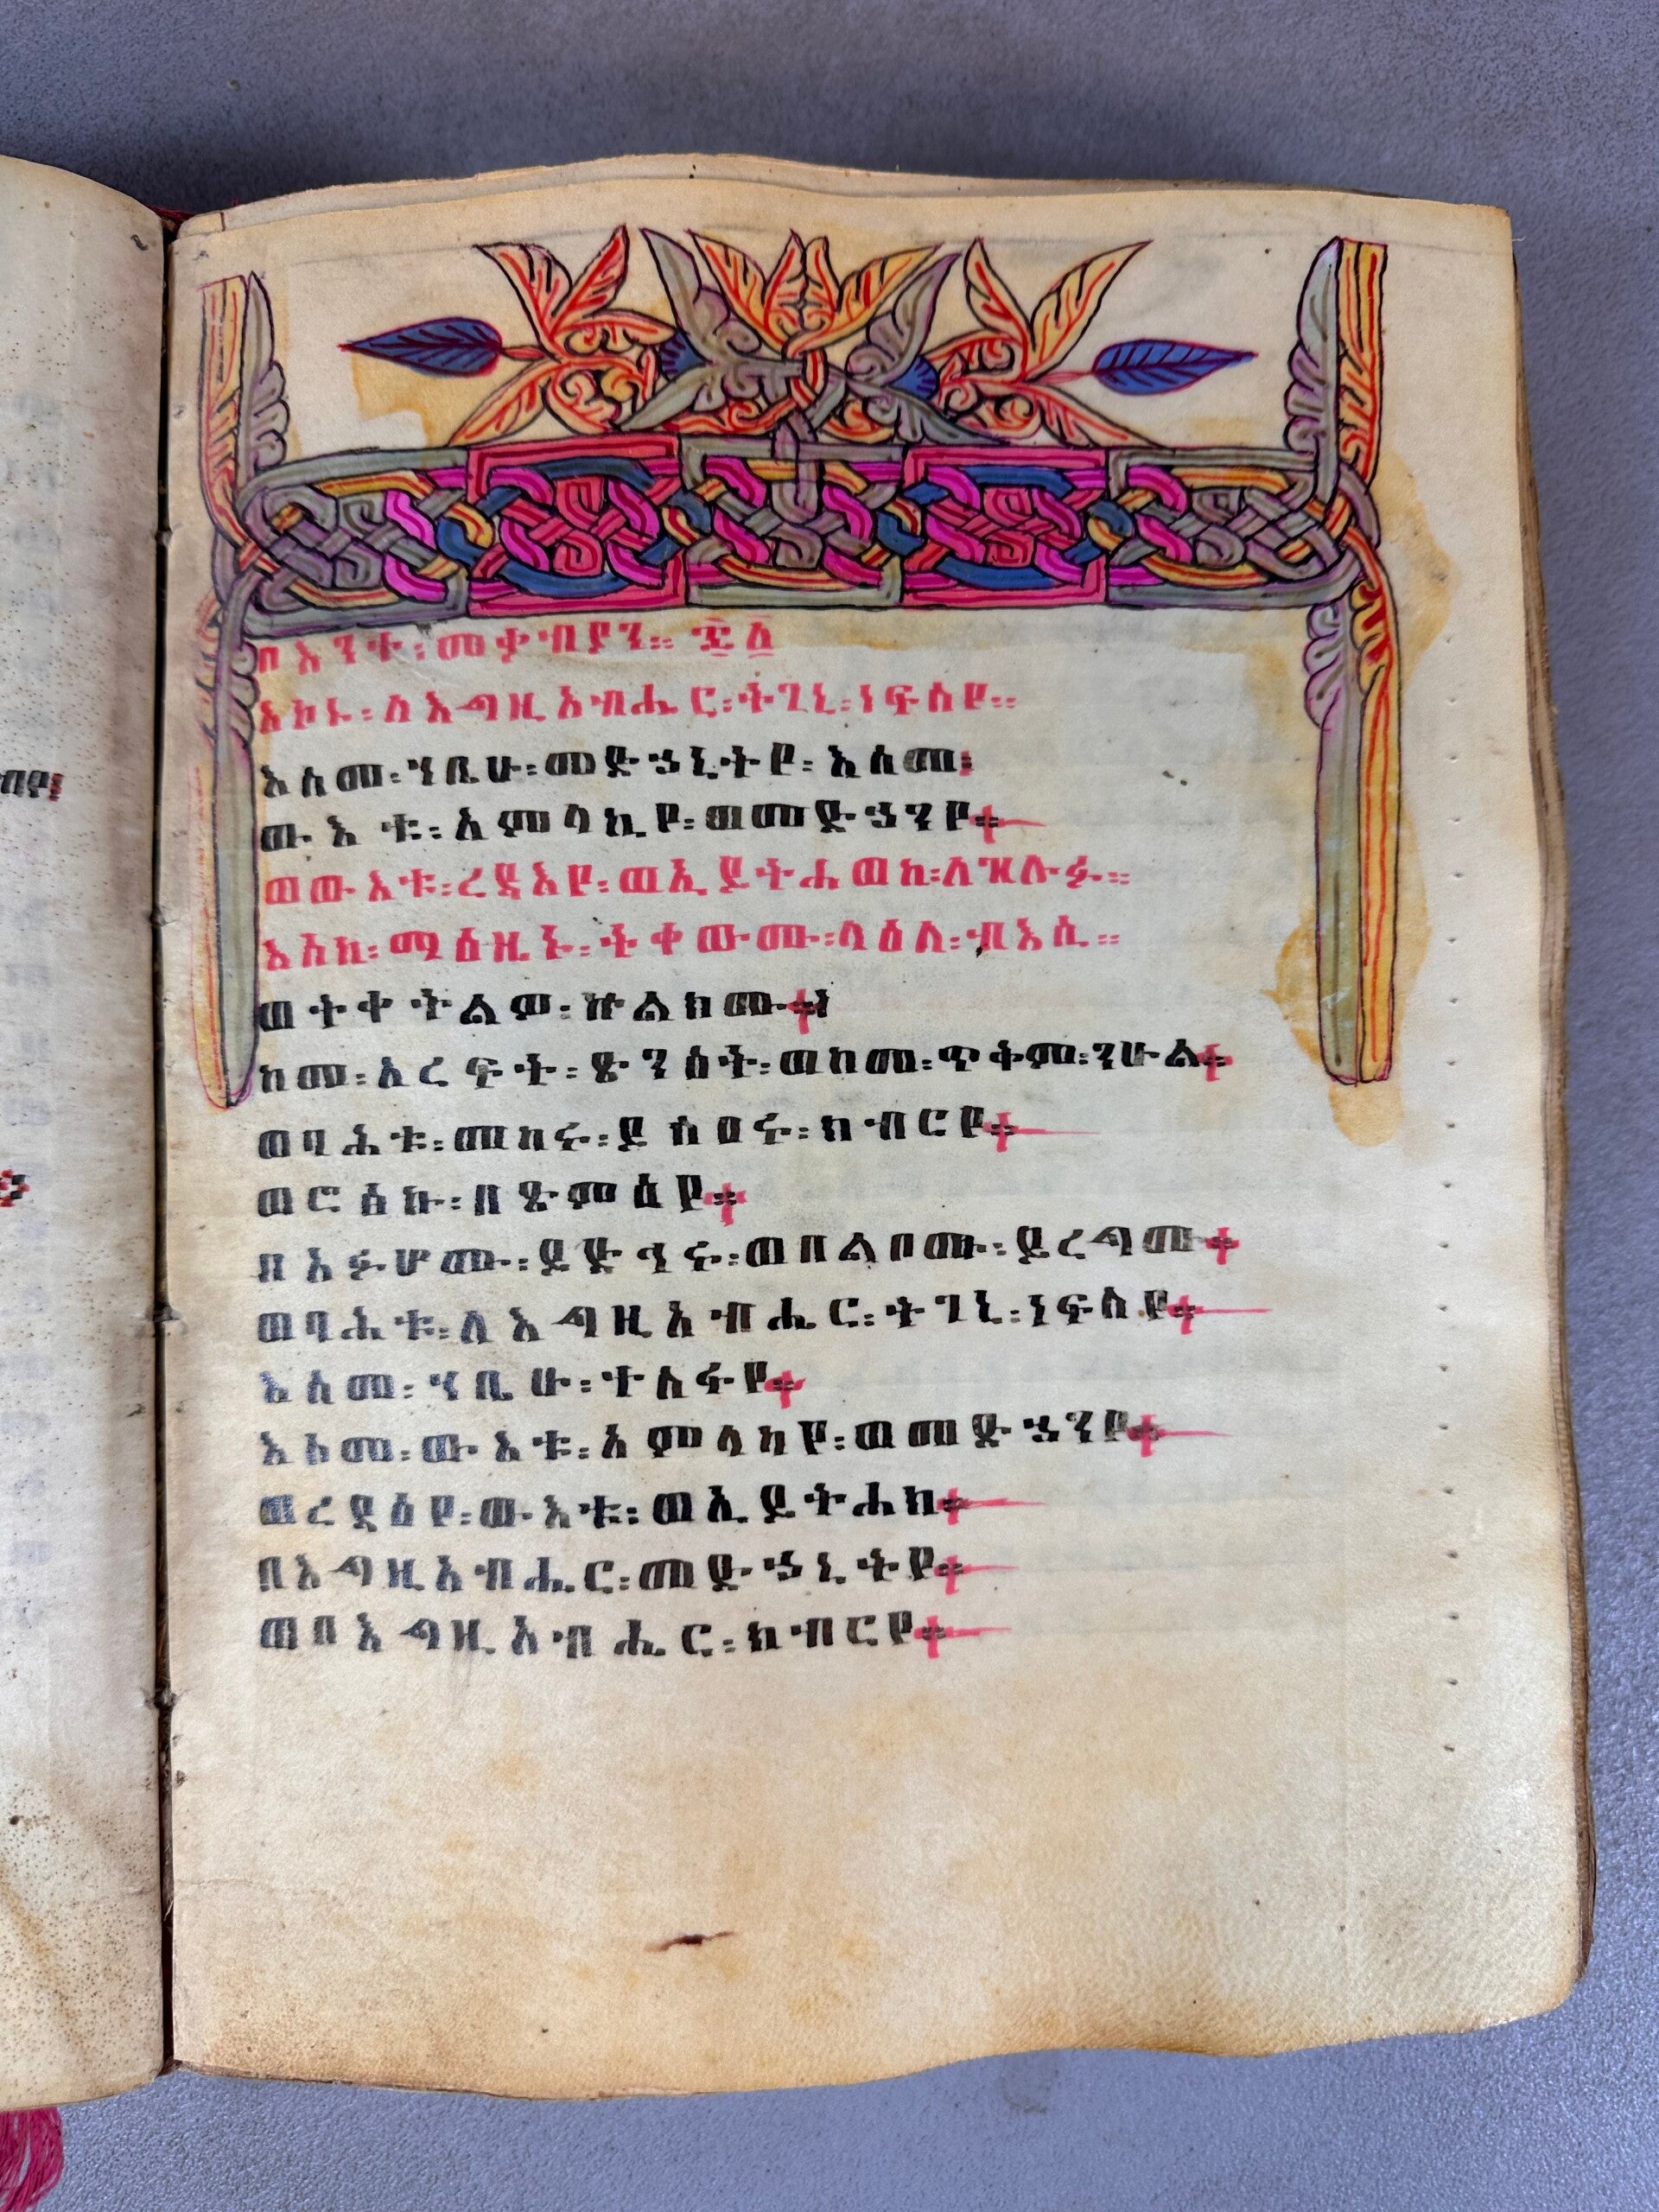 በእንተ፡መቃብያን። ፷ ፩
አኮኑ፡ለእግዚአብሔር፡ትገኒ፡ነፍስየ።
እስመ፡ኀቤሁ፡መድኃኒትየ፡እስመ፡
ውእቱ፡አምላኪየ፡ወመድኃንየ።
ወውእቱ፡ረዳእየ፡ወኢይትሐወክ፡ለዝሉፉ።
እስከ፡ማዕዚኑ፡ትቀውሙ፡ላዕለ፡ብእሲ።
ወተቀትልዎ፡ኵልክሙ።
ከመ፡አረፍት፡ጽንዕት፡ወከመ፡ጥቅም፡ንሁል።
ወባሕቱ፡መከሩ፡ይስዐሩ፡ክብርየ።
ወሮፅኩ፡በጽምዕየ።
በአፉሆሙ፡ይድኅሩ፡ወበልቦሙ፡ይረግሙ።
ወባሕቱ፡ለእግዚአብሔር፡ትገኒ፡ነፍስየ።
እስመ፡ኀቤሁ፡ተስፋየ።
እስመ፡ውእቱ፡አምላኪየ፡ወመድኃንየ።
ወረዳዕየ፡ውእቱ፡ወኢይትሐከ።
በእግዚአብሔር፡መድኃኒትየ።
ወበእግዚአብሔር፡ክብርየ።